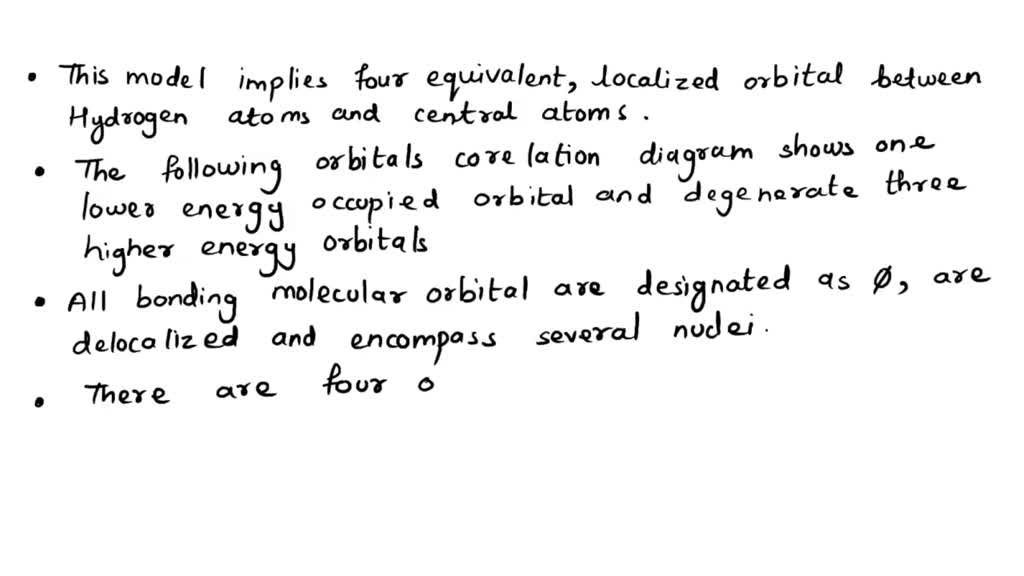 • This model implies four equivalent, localized orbital between
Hydrogen atoms and central atoms.
• The following orbitals corelation diagram shows one
lower energy occupied orbital and degenerate three
higher energy orbitals
• All bonding molecular orbital are designated as ø, are
delocalized and encompass several nuclei.
• There are four o